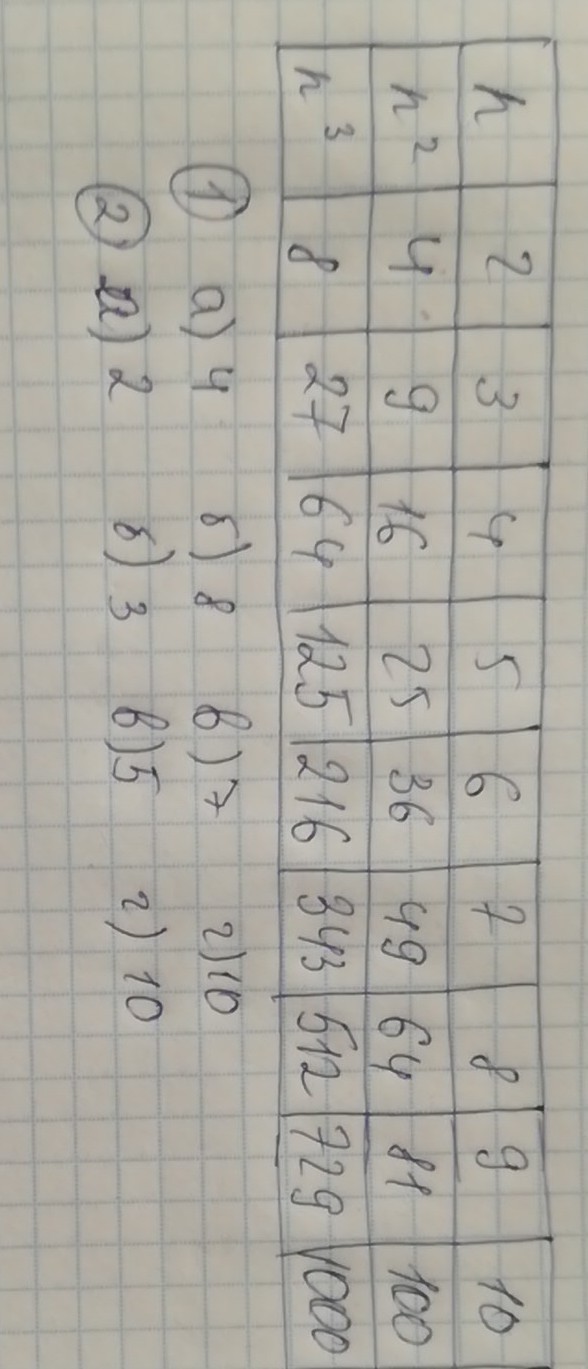 n 2 3 4 5 6 7 8 9 10
n² 4 9 16 25 36 49 64 81 100
n³ 8 27 64 125 216 343 512 729 1000
① а) 4 б) 8 в) 7 г) 10
② а) 2 б) 3 в) 5 г) 10